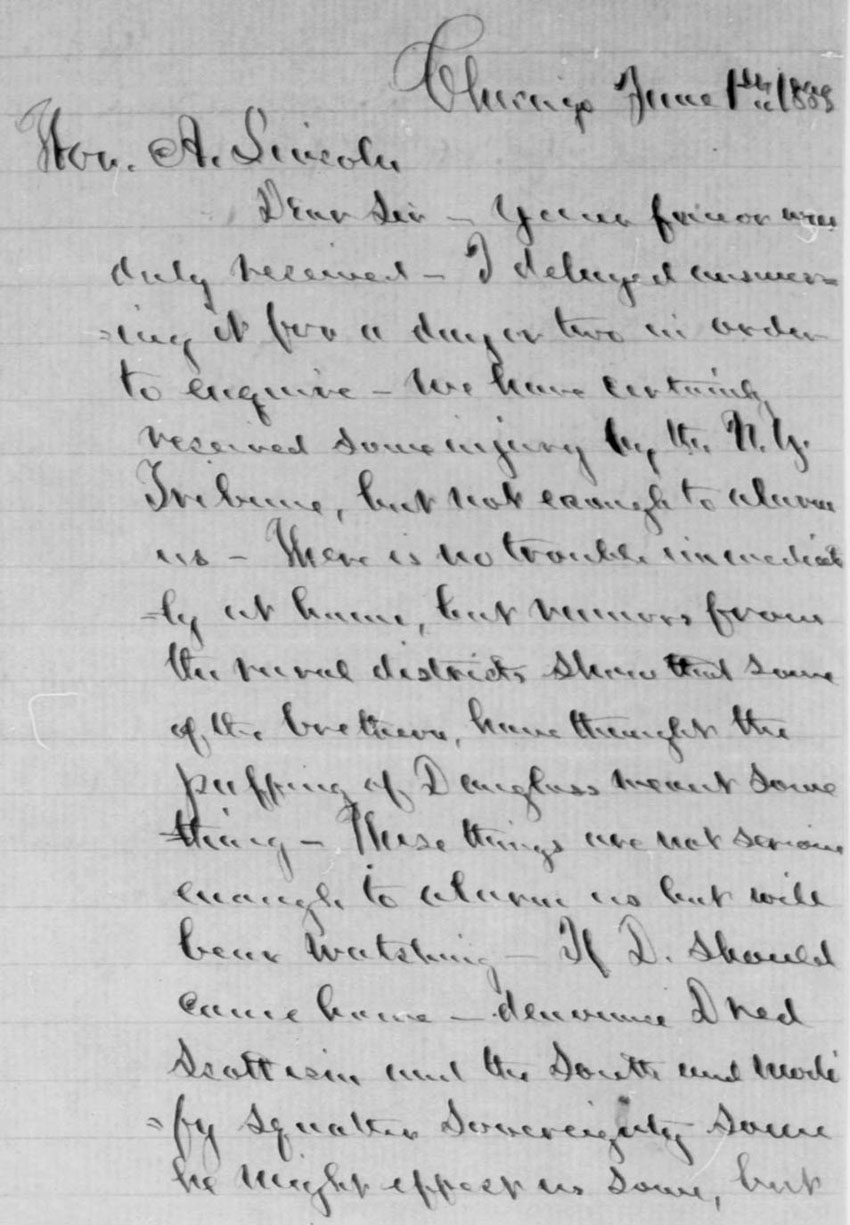 Chicago June 1st 1858
Hon. A. Lincoln
Dear Sir – Your favor was
duly received – I delayed answer=
=ing it for a day or two in order
to enquire – We have certainly
received some injury by the N. Y.
Tribune, but not enough to alarm
us – There is no trouble immediate
=ly at home, but rumors from
the rural districts show that some
of the brethern, have thought the
puffing of Douglass meant some
thing – These things are not serious
enough to alarm us but will
bear watching – If D. should
come home – denounce Dred
Scottism and the South and modi
=fy squatter Sovereignty some
he might effect us some, but